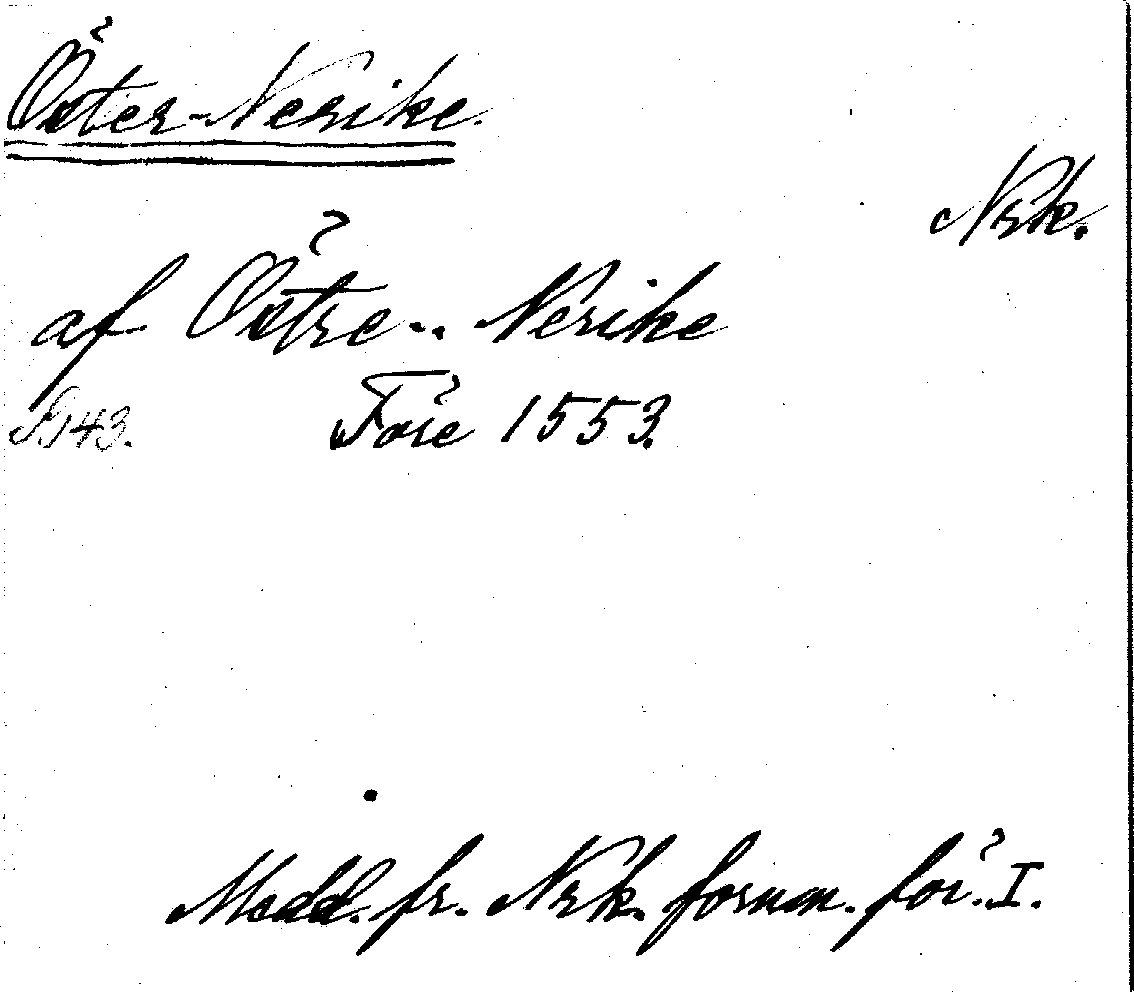 Öster-Nerike.
Nrk.
af Östre-. Nerike
S. 143. Före 1553.
Medd. fr. Nrk. fornm.för. I.